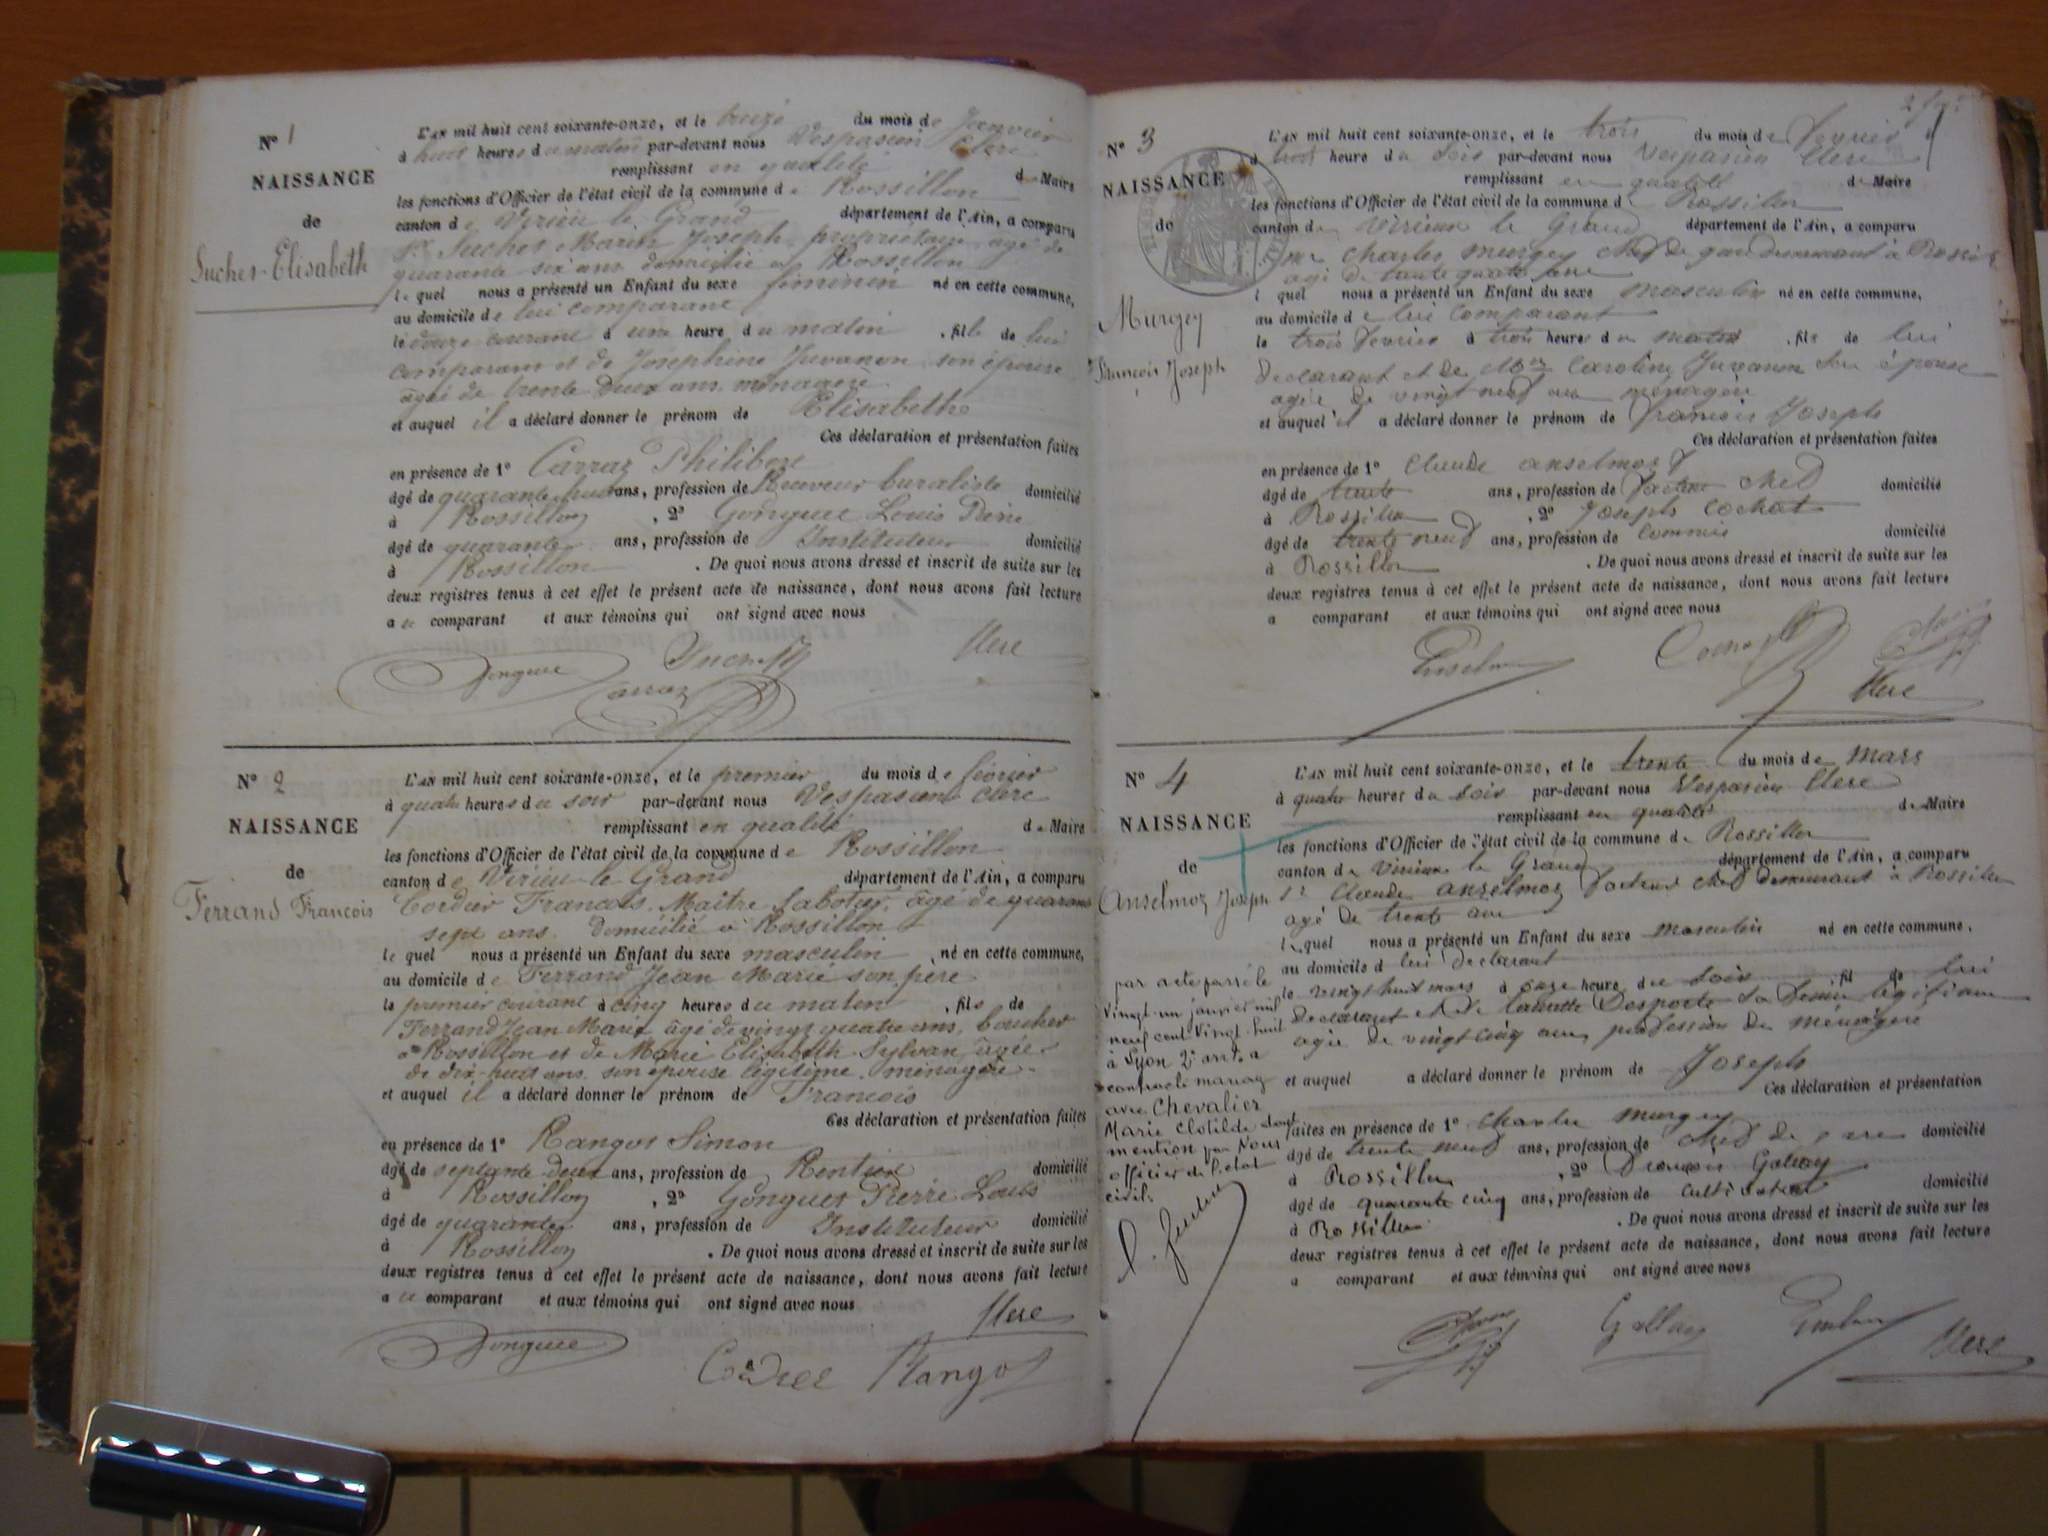 N° 1
NAISSANCE
de
Suchet Elisabeth
L'AN mil huit cent soixante-onze, et le treize du mois de Janvier
à huit heures du matin par-devant nous Vespasien Clerc
remplissant en qualité de Maire
les fonctions d'Officier de l'état civil de la commune de Rossillon
canton de Virieu le Grand département de l'Ain, a comparu
Sr Suchet Marin Joseph, propriétaire, âgé de
quarante six ans domicilié à Rossillon
lequel nous a présenté un Enfant du sexe féminin né en cette commune,
au domicile de lui comparant
le douze courant à une heure du matin, fille de lui
comparant et de Josephine Juvanon, son épouse
âgée de trente deux ans ménagère
et auquel il a déclaré donner le prénom de Elisabeth
Ces déclaration et présentation faites
en présence de 1° Carraz Philibert
âgé de quarante huit ans, profession de Receveur buraliste domicilié
à Rossillon, 2° Gonguet Louis Pierre
âgé de quarante ans, profession de Instituteur domicilié
à Rossillon. De quoi nous avons dressé et inscrit de suite sur les
deux registres tenus à cet effet le présent acte de naissance, dont nous avons fait lecture
au comparant et aux témoins qui ont signé avec nous
Gonguet Suchet Clerc
Carraz
N° 2
NAISSANCE
de
Ferrand François
L'AN mil huit cent soixante-onze, et le premier du mois de février
à quatre heures du soir par-devant nous Vespasien Clerc
remplissant en qualité de Maire
les fonctions d'Officier de l'état civil de la commune de Rossillon
canton de Virieu le Grand département de l'Ain, a comparu
Cordier Francois, Maître Sabotier, âgé de quarante
sept ans domicilié à Rossillon
lequel nous a présenté un Enfant du sexe masculin, né en cette commune,
au domicile de Ferrand Jean Marie son père
le premier courant à cinq heures du matin, fils de
Ferrand Jean Marie âgé de vingt quatre ans, boucher
à Rossillon et de Marie Elisabeth Sylvan, âgée
de dix-huit ans son épouse légitime, ménagère
et auquel il a déclaré donner le prénom de François
Ces déclaration et présentation faites
en présence de 1° Rangot Simon
âgé de septante deux ans, profession de Rentier domicilié
à Rossillon, 2° Gonguet Pierre Louis
âgé de quarante ans, profession de Instituteur domicilié
à Rossillon. De quoi nous avons dressé et inscrit de suite sur les
deux registres tenus à cet effet le présent acte de naissance, dont nous avons fait lecture
au comparant et aux témoins qui ont signé avec nous
Clerc
Gonguet Rangot
N° 3
NAISSANCE
de
Murgey
François Joseph
L'AN mil huit cent soixante-onze, et le trois du mois de Fevrier
à trois heure du soir par-devant nous Vespasien Clerc
remplissant en qualité de Maire
les fonctions d'Officier de l'état civil de la commune d Rossillon
canton de Virieux le Grand département de l'Ain, a comparu
mr Charles Murgey chef de gare demeurant à Rossillon
agé de trente quatre ans
l quel nous a présenté un Enfant du sexe masculin né en cette commune,
au domicile de lui comparant
le trois Fevrier à trois heures du matin, fils de lui
declarant et de Mme Caroline Juvanon son épouse
agée de vingt neuf ans ménagère
et auquel il a déclaré donner le prénom de François Joseph
Ces déclaration et présentation faites
en présence de 1° Claude Anselmoz
âgé de trente ans, profession de facteur chef domicilié
à Rossillon, 2° Joseph Cochat
âgé de trente neuf ans, profession de commis domicilié
à Rossillon. De quoi nous avons dressé et inscrit de suite sur les
deux registres tenus à cet effet le présent acte de naissance, dont nous avons fait lecture
a comparant et aux témoins qui ont signé avec nous
Clerc
N° 4
NAISSANCE
de
Anselmoz Joseph
L'AN mil huit cent soixante-onze, et le trente du mois de mars
à quatre heures du soir par-devant nous Vespasien Clerc
remplissant en qualité de Maire
les fonctions d'Officier de l'état civil de la commune de Rossillon
canton de Virieu le Grand département de l'Ain, a comparu
Sr Claude Anselmoz facteur chef demeurant à Rossillon
agé de trente ans
lequel nous a présenté un Enfant du sexe masculin né en cette commune,
au domicile d lui declarant
le vingt huit mars à onze heure du soir fil de lui
declarant et de Desporte sa femme légitime
agée de vingt cinq ans, profession de ménagère
et auquel a déclaré donner le prénom de Joseph
Ces déclaration et présentation
faites en présence de 1° Charles Murgey
âgé de trente neuf ans, profession de chef de gare domicilié
à Rossillon, 2° François Gallay
âgé de quarante cinq ans, profession de cultivateur domicilié
à Rossillon. De quoi nous avons dressé et inscrit de suite sur les
deux registres tenus à cet effet le présent acte de naissance, dont nous avons fait lecture
a comparant et aux témoins qui ont signé avec nous
Gallay Clerc
par acte passé le
vingt-un janvier mil
neuf cent vingt-huit
à Lyon 2e arrt. a
contracté mariag
avec Chevalier
Marie Clotilde dont
mention par Nous
officier de l'état
civil.